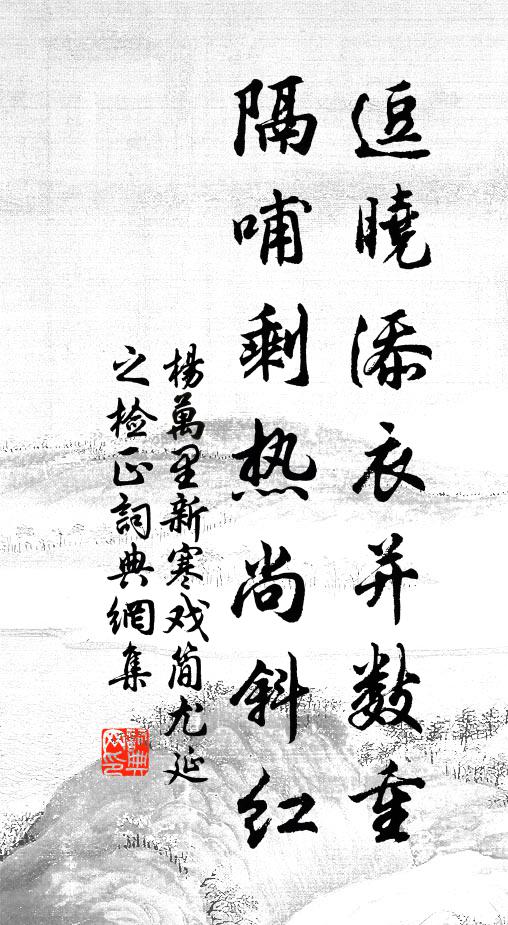 逗曉添衣并數重
隔哺剩热尚斜红
楊萬里新寒戏简尤延
之检正詞典網集